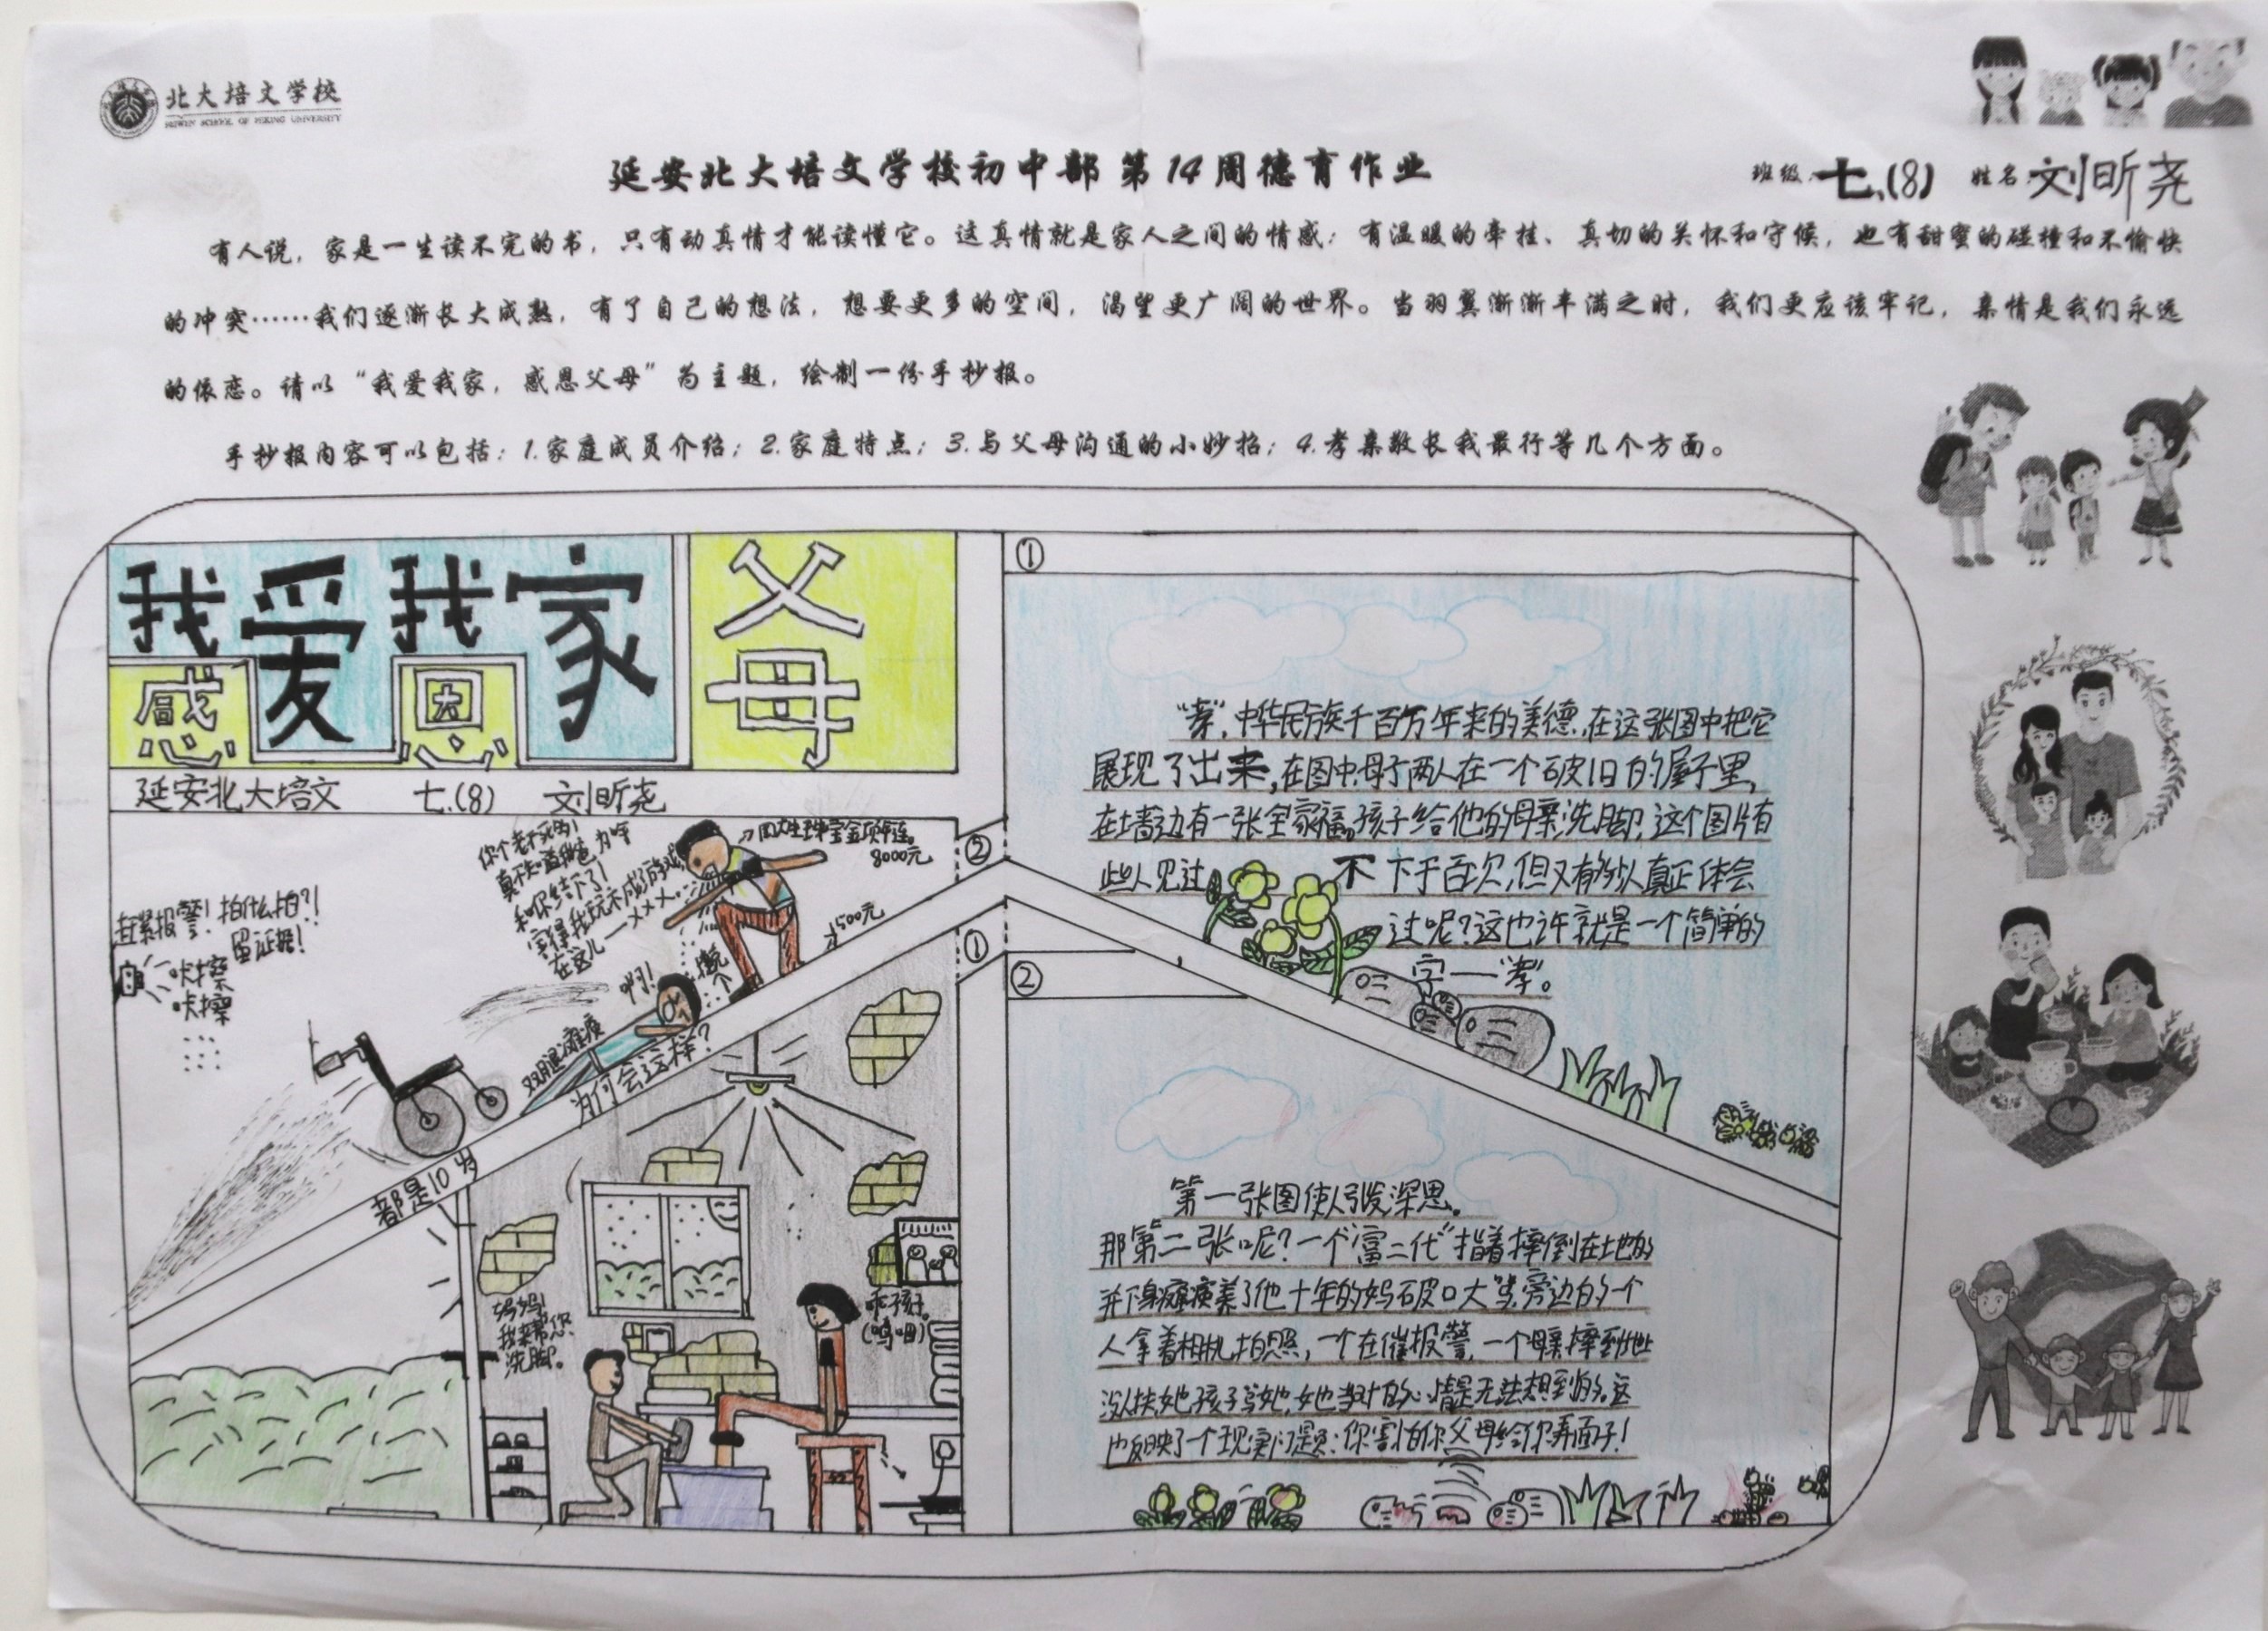 北大培文学校
PEIWEN SCHOOL OF PEKING UNIVERSITY
延安北大培文学校初中部第14周德育作业
班级：七.(8) 姓名：刘昕尧
有人说，家是一生读不完的书，只有动真情才能读懂它。这真情就是家人之间的情感：有温暖的牵挂、真切的关怀和守候，也有甜蜜的碰撞和不愉快
的冲突……我们逐渐长大成熟，有了自己的想法，想要更多的空间，渴望更广阔的世界。当羽翼渐渐丰满之时，我们更应该牢记，亲情是我们永远
的依恋。请以“我爱我家，感恩父母”为主题，绘制一份手抄报。
手抄报内容可以包括：1.家庭成员介绍；2.家庭特点；3.与父母沟通的小妙招；4.孝亲敬长我最行等几个方面。
我爱我家
感恩父母
延安北大培文 七.(8) 刘昕尧
赶紧报警！拍什么拍？！
留证据！
咔擦
咔擦
你个老不死的！
真不知道我爸为啥
和你结下了！
害得我玩不成了游戏，
在这儿一×××…
周大生珠宝金项链。
8000元
1500元
啊！
双腿瘫痪
为何会这样？
都是10岁
②
①
妈妈！
我来帮您
洗脚。
乖孩子。
(呜咽)
①
“孝”，中华民族千百万年来的美德，在这张图中把它
展现了出来，在图中母子两人在一个破旧的屋子里，
在墙边有一张全家福。孩子给他的母亲洗脚，这个图片有
些人见过不下于百次，但又有多少人真正体会
过呢？这也许就是一个简单的
字—“孝”。
②
第一张图使人引发深思。
那第二张呢？一个“富二代”指着摔倒在土地的
并下身瘫痪养了他十年的妈破口大骂，旁边的一个
人拿着相机拍照，一个在催报警，一个母亲摔到地
没人扶她，孩子骂她，她当时的心情是无法想到的。这
也反映了一个现实问题：你害怕你父母给你弄面子！